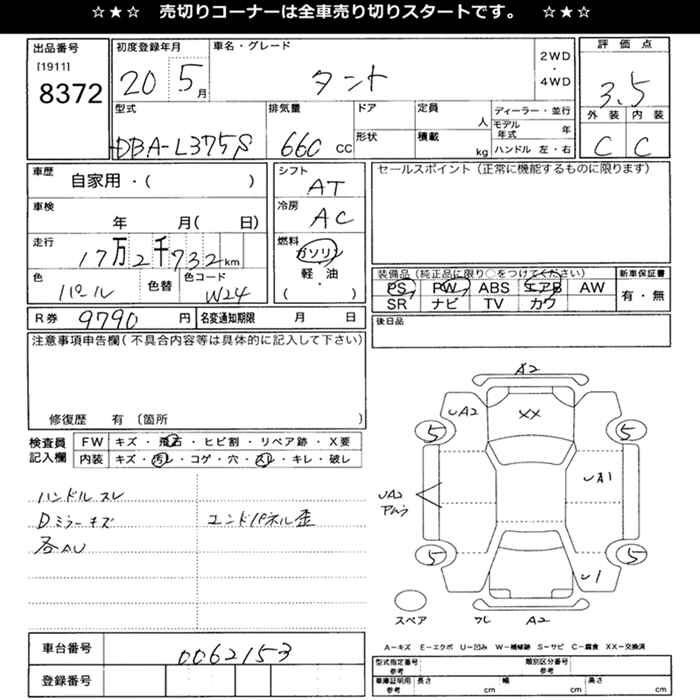 ☆★☆ 売切りコーナーは全車売り切りスタートです。 ☆★☆
出品番号
[1911]
8372
初度登録年月
20 5月
車名・グレード
タント
2WD
・
4WD
評価点
3.5
外装 内装
C C
型式
DBA-L375S
排気量
660 CC
ドア
形状
定員
人
積載
kg
ディーラー・並行
モデル年式 年
ハンドル 左・右
車歴
自家用・( )
車検
年 月( 日)
走行
17万2千732km
色
パール
色替
色コード
W24
シフト
AT
冷房
AC
燃料
ガソリン
軽・油
( )
セールスポイント(正常に機能するものに限ります)
装備品(純正品に限り○をつけてください)
PS PW ABS エアB AW
SR ナビ TV カワ
新車保証書
有・無
後日品
R券 9790 円
名変通知期限 月 日
注意事項申告欄(不具合内容等は具体的に記入して下さい)
修復歴 有 〔箇所 〕
検査員
記入欄
FW キズ・飛石・ヒビ割・リペア跡・X要
内装 キズ・汚レ・コゲ・穴・スレ・キレ・破レ
ハンドルスレ
Dミラーキズ エンドパネル歪
各AU
A2
UA2
XX
5 5
UA1
UA2
5 5
U1
スペア
A2
A-キズ E-エクボ U-凹み W-補修跡 S-サビ C-腐食 XX-交換済
車台番号
0062153
登録番号
型式指定番号
参考
類別区分番号
参考
車庫証明用
参考
長さ cm
幅 cm
高さ cm